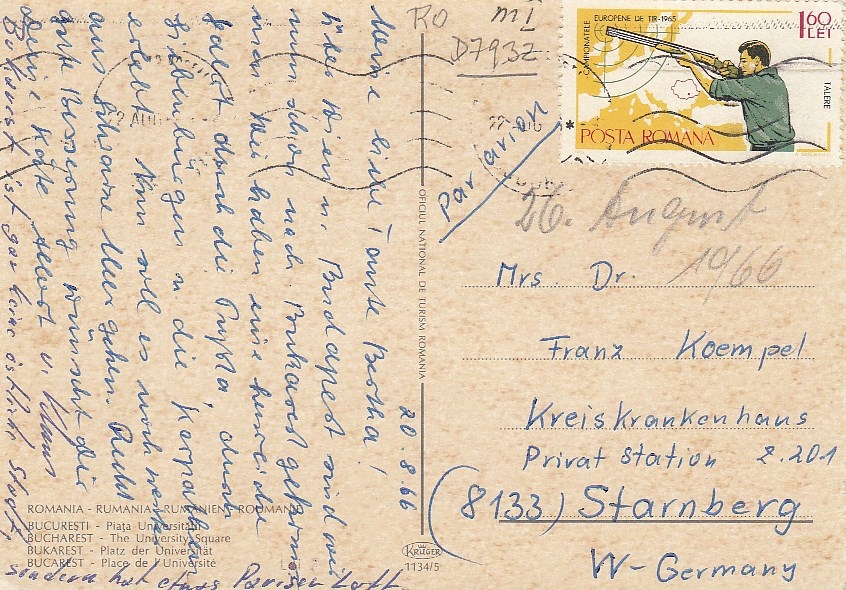 20.8.66
Meine liebe Tante Bertha!
Über Wien u. Budapest sind wir
nun schon nach Bukarest gekom-
men. Wir haben eine
Fahrt durch die Pußta, durch
Siebenbürgen u. die Karpaten
erlebt. Nun soll es noch weiter
ans Schwarze Meer gehen. Recht
gute Besserung wünscht dir
deine Käte Albert u. Klaus
Bukarest ist gar keine östliche Stadt,
sondern hat etwas Pariser Luft
ROMANIA - RUMANIA - RUMÄNIEN - ROUMANIE
BUCUREȘTI - Piața Universității
BUCHAREST - The University Square
BUKAREST - Platz der Universität
BUCAREST - Place de l'Université
OFICIUL NATIONAL DE TURISM ROMANIA
KRÜGER
1134/5
RO
D7932
CAMPIONATELE EUROPENE DE TIR-1965
1,60 LEI
TALERE
POSTA ROMANA
22 AUG
Par avion
26. August
1966
Mrs. Dr.
Franz Koempel
Kreiskrankenhaus
Privat station Z.201
(8133) Starnberg
W-Germany